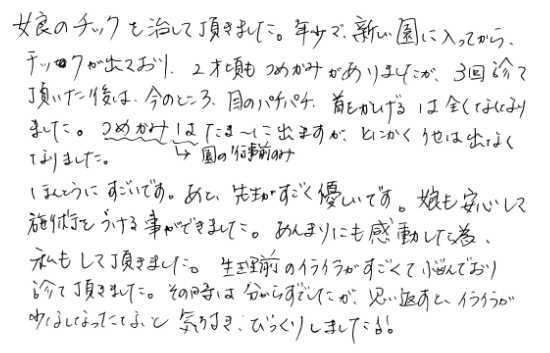 娘のチックを治して頂きました。年少で、新しい園に入ってから、
チックが出ており、2才頃もつめかみがありましたが、3回診て
頂いた後は、今のところ、目のパチパチ、首をかしげるは全くなくなり
ました。つめかみはたま〜に出ますが、とにかくくせは出なく
なりました。 →園の行事前のみ
ほんとうにすごいです。あと、先生がすごく優しいです。娘も安心して
施術をうける事ができました。あんまりにも感動した為、
私もして頂きました。生理前のイライラがすごくて悩んでおり
診て頂きました。その時は分からずでしたが、思い返すと、イライラが
少なくなったなふと気づき、びっくりしました